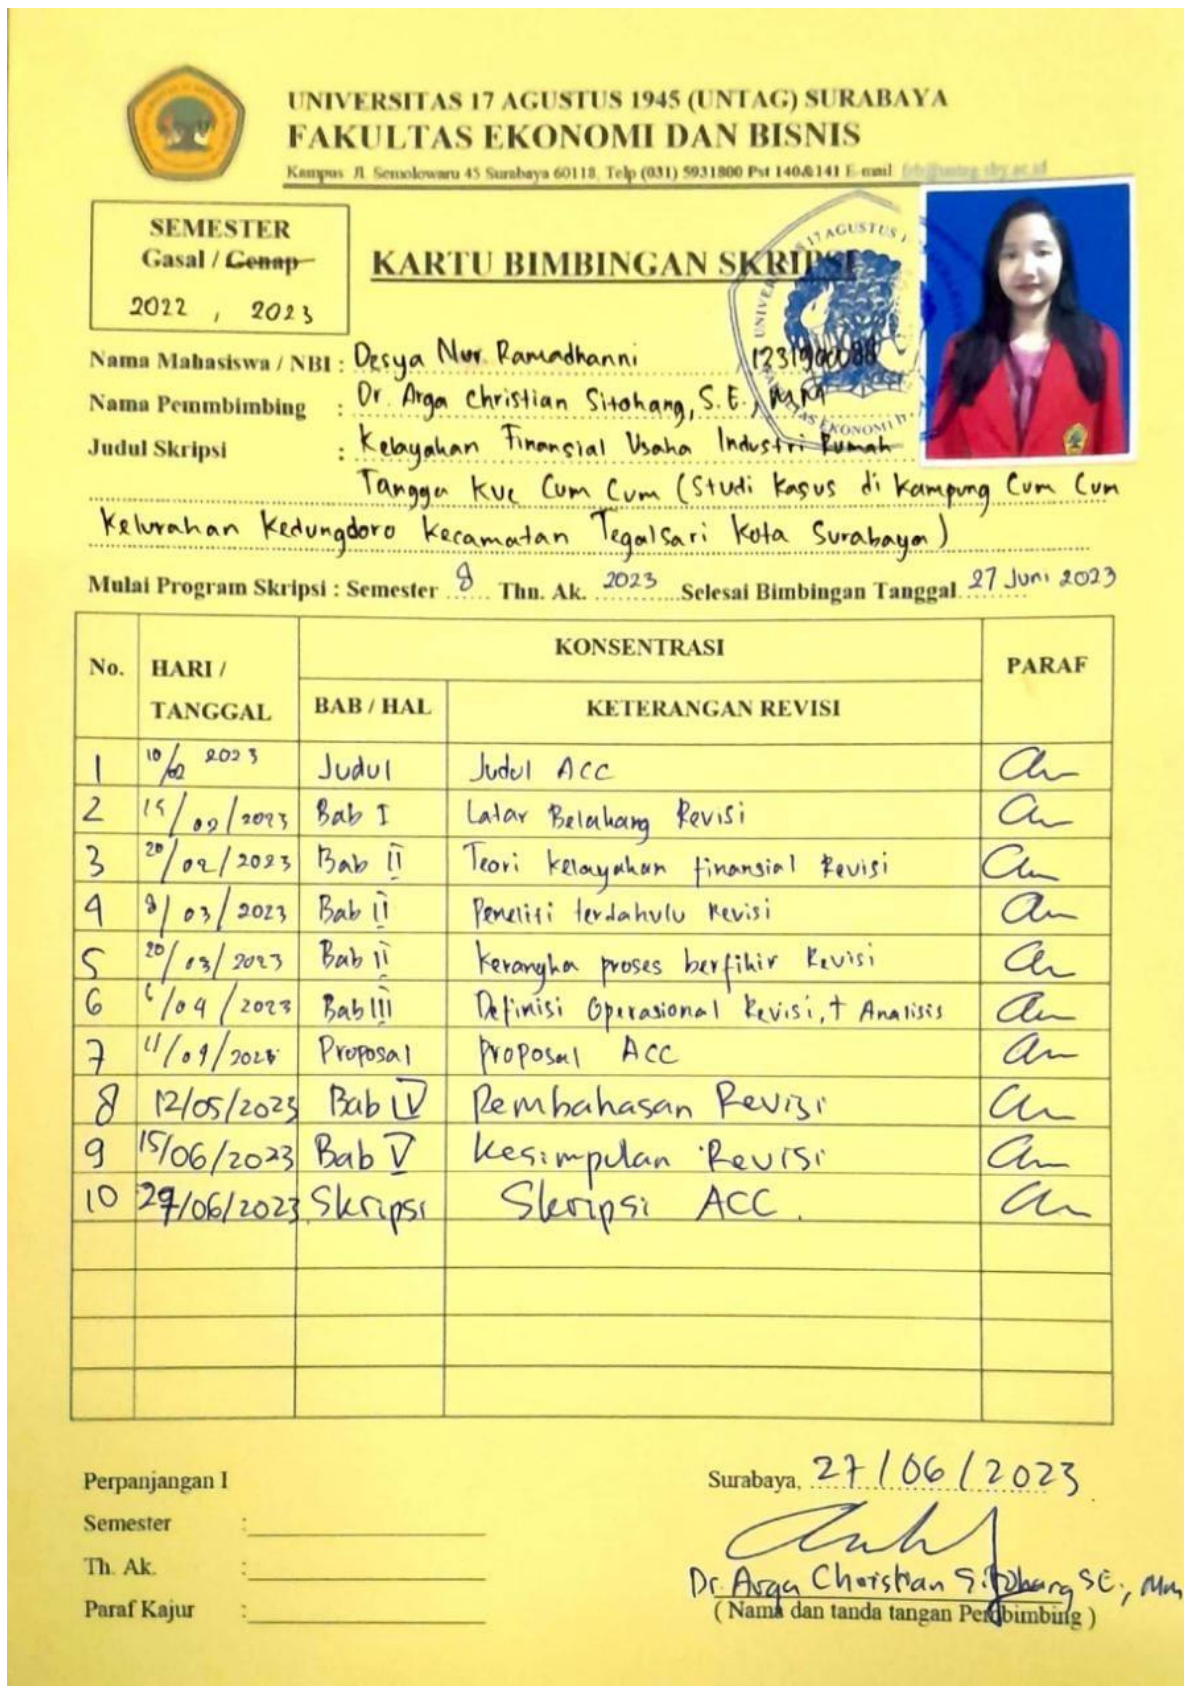 UNIVERSITAS 17 AGUSTUS 1945 (UNTAG) SURABAYA
FAKULTAS EKONOMI DAN BISNIS
Kampus Jl. Semolowaru 45 Surabaya 60118, Telp (031) 5931800 Pst 140&141 E-mail
SEMESTER
Gasal / Genap
2022 , 2023
KARTU BIMBINGAN SKRIPSI
Nama Mahasiswa / NBI : Desya Nur Ramadhanni / 1231900088
Nama Pemmbimbing : Dr. Arga Christian Sitohang, S.E., MM
Judul Skripsi : Kelayakan Finansial Usaha Industri Rumah
Tangga Kue Cum Cum (Studi Kasus di Kampung Cum Cum
Kelurahan Kedungdoro Kecamatan Tegalsari Kota Surabaya)
Mulai Program Skripsi : Semester 8 Thn. Ak. 2023 Selesai Bimbingan Tanggal 27 Juni 2023
No. HARI / TANGGAL KONSENTRASI PARAF
BAB / HAL KETERANGAN REVISI
1 10/02 2023 Judul Judul ACC
2 15/02/2023 Bab I Latar Belakang Revisi
3 20/02/2023 Bab II Teori kelayakan finansial Revisi
4 8/03/2023 Bab II Peneliti terdahulu Revisi
5 20/03/2023 Bab II Kerangka proses berfikir Revisi
6 6/04/2023 Bab III Definisi Operasional Revisi, + Analisis
7 11/04/2023 Proposal Proposal ACC
8 12/05/2023 Bab IV Pembahasan Revisi
9 15/06/2023 Bab V Kesimpulan Revisi
10 27/06/2023 Skripsi Skripsi ACC.
Perpanjangan I
Semester :
Th. Ak. :
Paraf Kajur :
Surabaya, 27/06/2023
Dr. Arga Christian Sitohang SE., MM
( Nama dan tanda tangan Pembimbing )